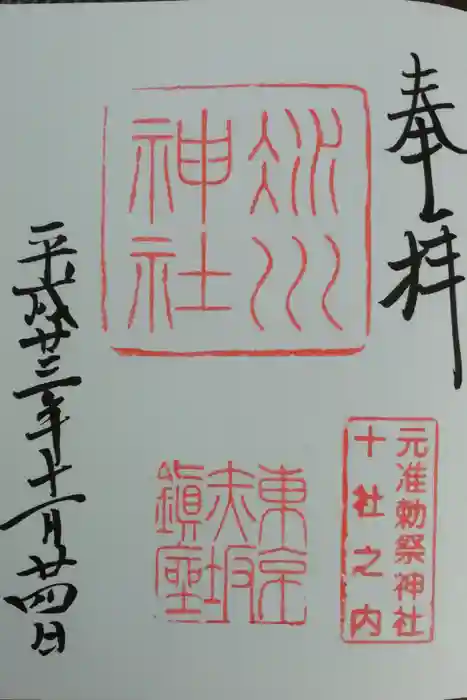 奉拝
元准勅祭神社
十社之内
氷川
神社
東京
赤坂
鎮座
平成廿三年十一月廿四日